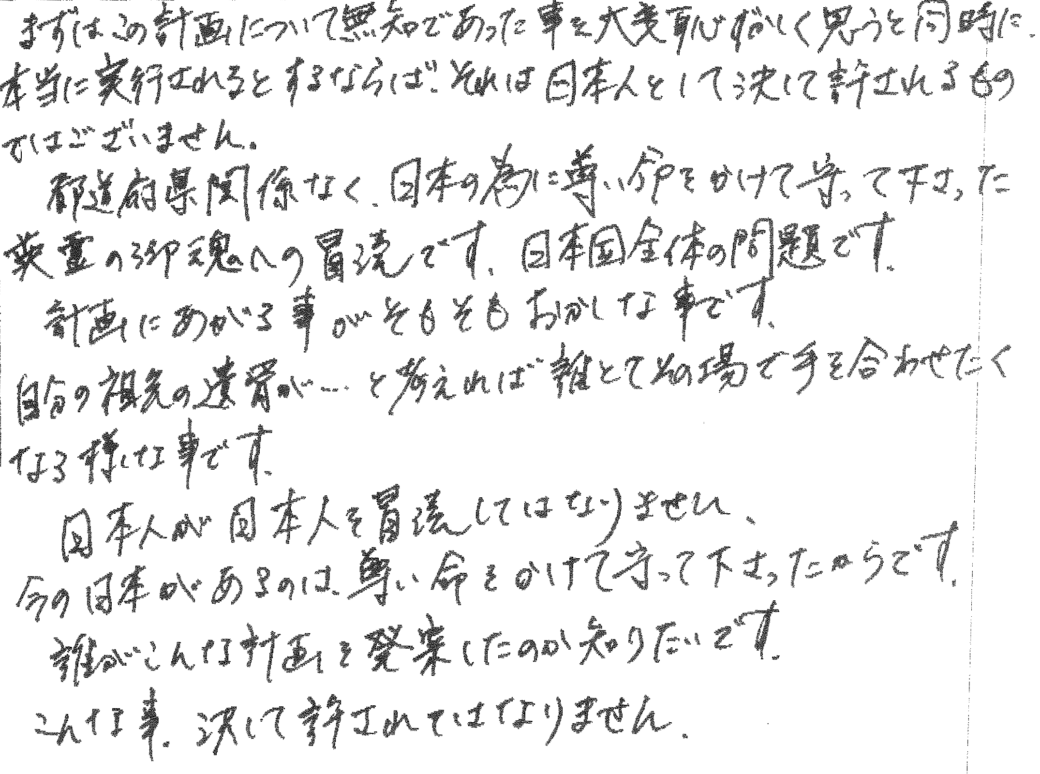 まずはこの計画について無知であった事を大変恥ずかしく思うと同時に、
本当に実行されるとするならば、それは日本人として決して許されるもの
ではございません。
都道府県関係なく、日本の為に尊い命をかけて守って下さった
英霊の御魂への冒涜です。日本国全体の問題です。
計画にあがる事がそもそもおかしな事です。
自分の祖先の遺骨が…と考えれば誰とてその場で手を合わせたく
なる様な事です。
日本人が日本人を冒涜してはなりません、
今の日本があるのは、尊い命をかけて守って下さったからです。
誰がこんな計画を発案したのか知りたいです。
こんな事、決して許されてはなりません。